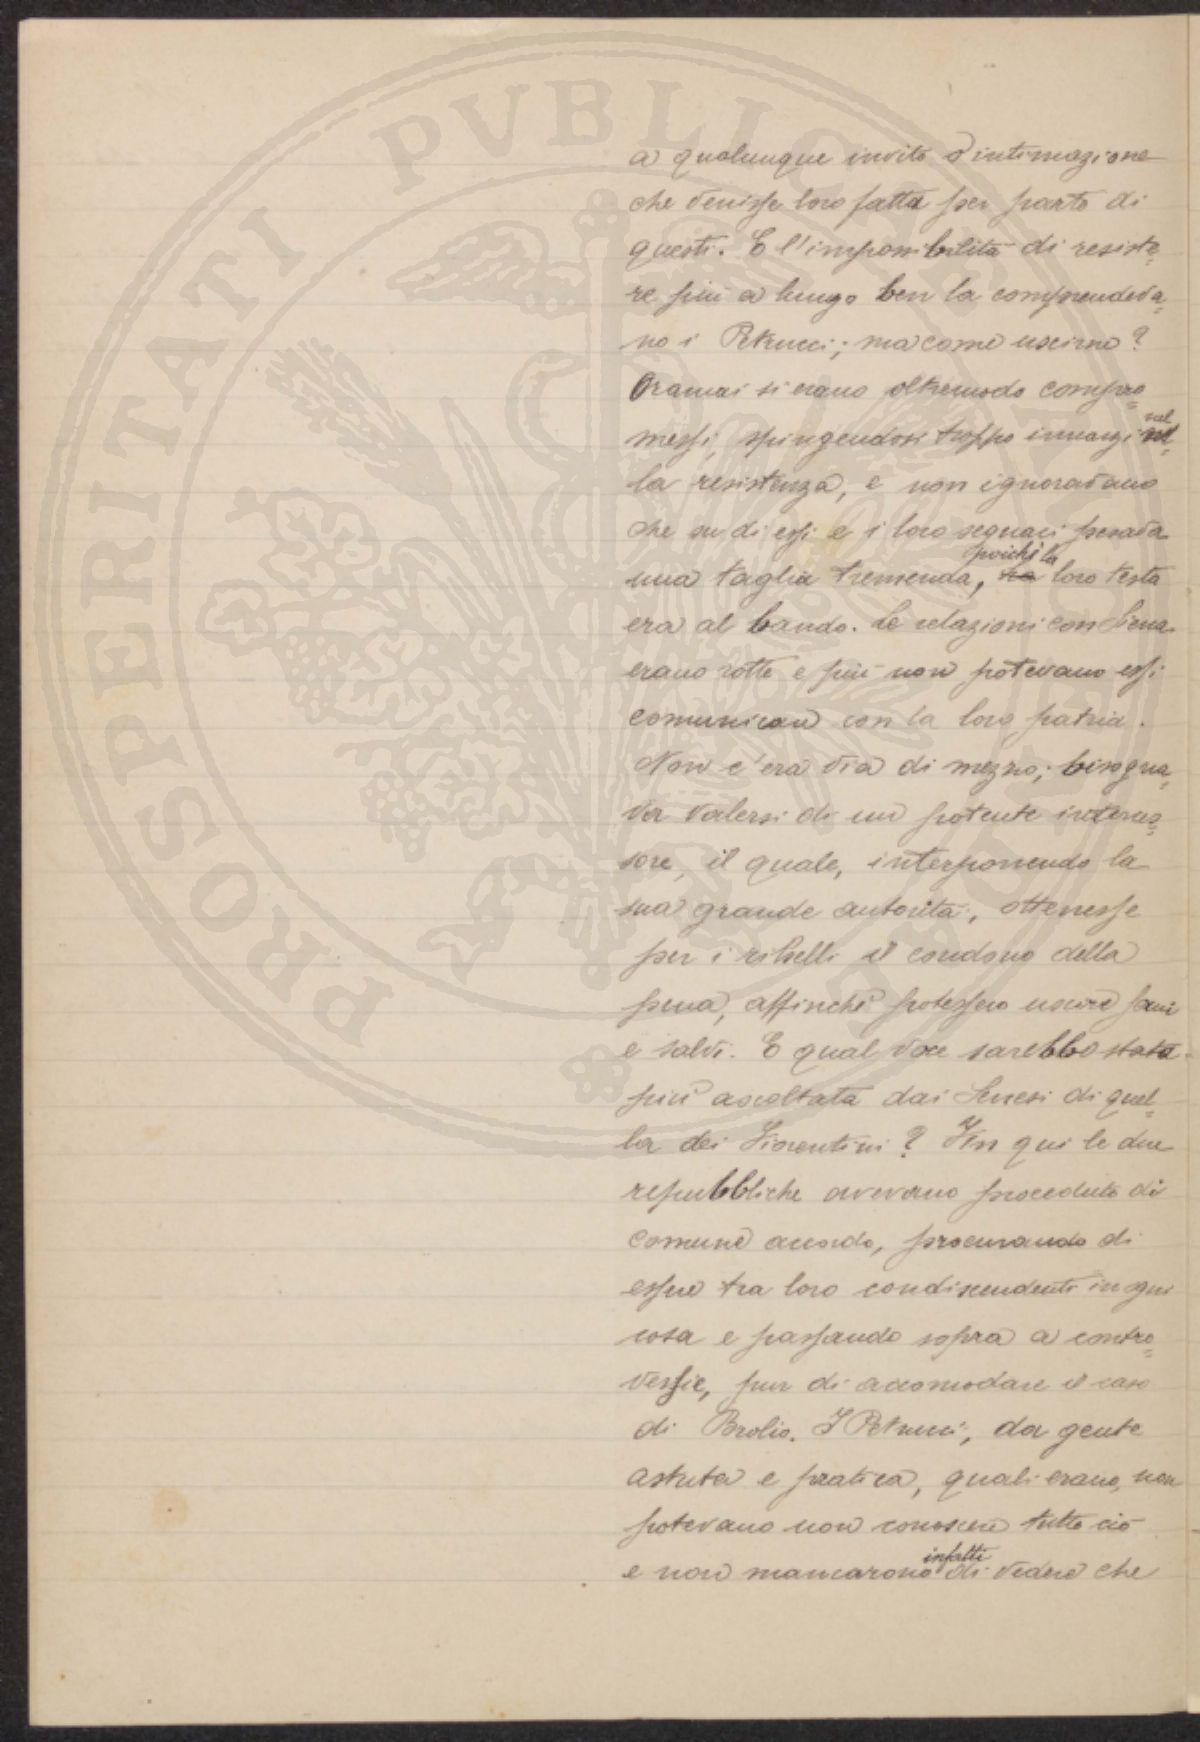 a qualunque invito o intimazione
che venisse loro fatta per parte di
questi. E l'impossibilità di resiste=
re più a lungo ben la comprendeva=
no i Petrucci; ma come uscirne?
Oramai si erano oltremodo compro=
messi, spingendosi troppo innanzi nel=
la resistenza, e non ignoravano
che su di essi e i loro seguaci pesava
una taglia tremenda, poichè la loro testa
era al bando. Le relazioni con Siena
erano rotte e più non potevano essi
comunicare con la loro patria.
Non c'era via di mezzo; bisogna=
va valersi di un potente interces=
sore, il quale, interponendo la
sua grande autorità, ottenesse
per i ribelli il condono della
pena, affinchè potessero uscire sani
e salvi. E qual voce sarebbe stata
più ascoltata dai Senesi di quel=
la dei Fiorentini? Fin qui le due
repubbliche avevano proceduto di
comune accordo, procurando di
essere tra loro condiscendenti in ogni
cosa e passando sopra a contro=
versie, pur di accomodare il caso
di Brolio. I Petrucci, da gente
astuta e pratica, quali erano, non
potevano non conoscere tutto ciò
e non mancarono infatti di vedere che
PROSPERITATI PVBLICAE